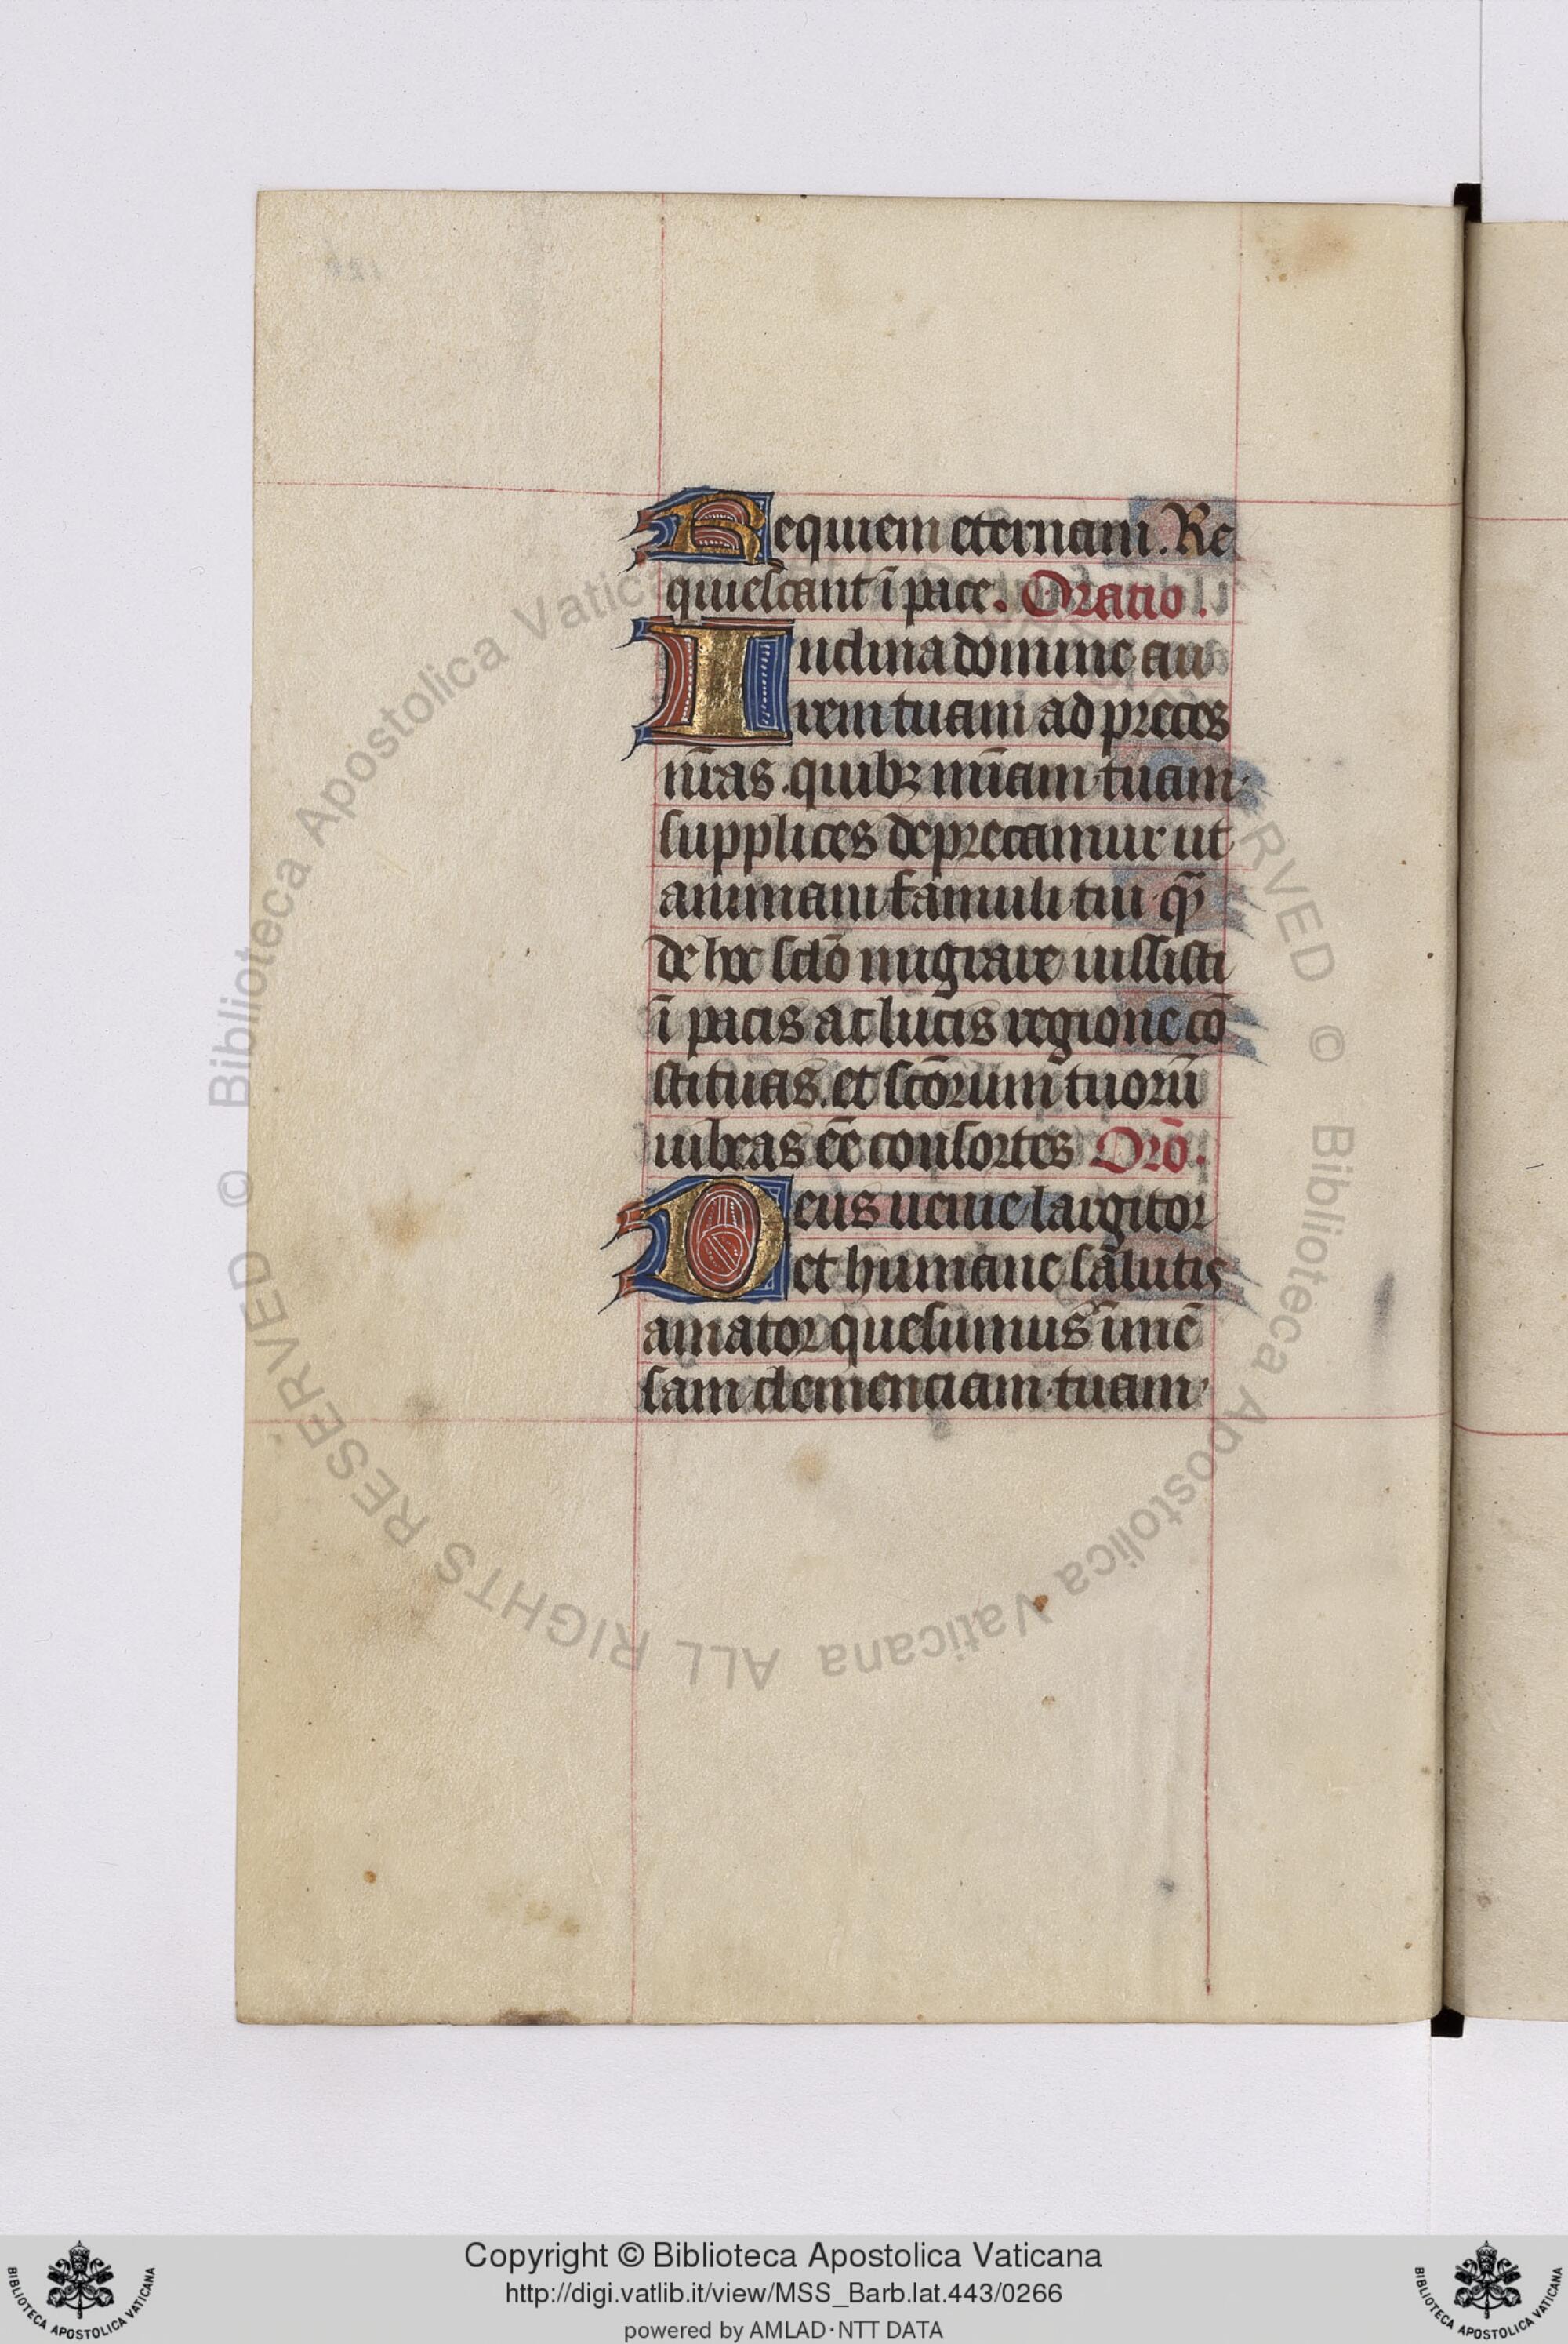 Requiem eternam. Re
quiescant ī pace. Oratio.
Inclina domine au
rem tuam ad preces
nr̄as. quibꝫ mīam tuam
supplices deprecamur ut
animam famuli tui q̄
de hoc sclō migrare iussisti
ī pacis ac lucis regione cō
stituas. et scōrum tuorū
iubeas eē consortes Orō.
Deus uenie largitor
et humane salutis
amator quesumus īmē
sam clemenciam tuam
Biblioteca Apostolica Vaticana
ALL RIGHTS RESERVED ©
Copyright © Biblioteca Apostolica Vaticana
http://digi.vatlib.it/view/MSS_Barb.lat.443/0266
powered by AMLAD·NTT DATA
BIBLIOTECA APOSTOLICA VATICANA
BIBLIOTECA APOSTOLICA VATICANA